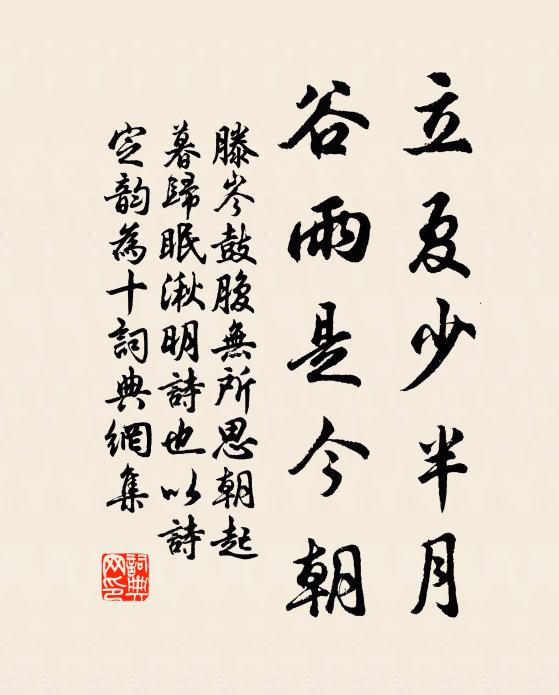 立夏少半月
谷雨是今朝
滕岑鼓腹無所思朝起
暮歸眠湫明詩也以詩
定韵為十詞典網集
詞典网印